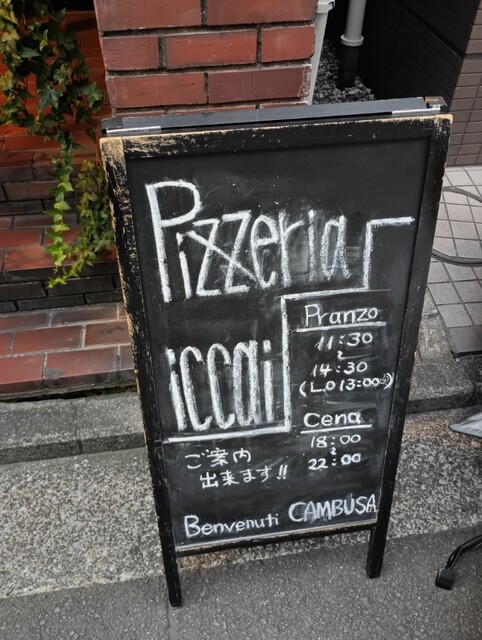 Pizzeria
iccai
Pranzo
11:30
~
14:30
(L.O 13:00)
Cena
18:00
~
22:00
ご案内
出来ます!!
Benvenuti CAMBUSA